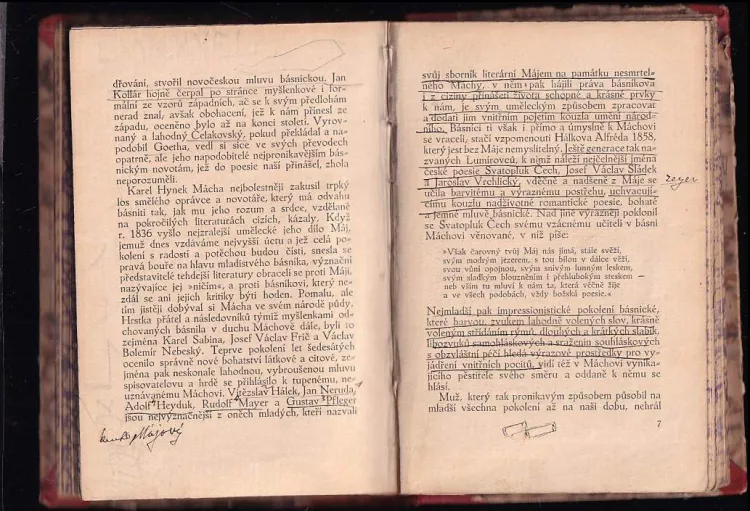 dřování, stvořil novočeskou mluvu básnickou. Jan
Kollár hojně čerpal po stránce myšlenkové i for-
mální ze vzorů západních, ač se k svým předlohám
nerad znal, avšak obohacení, jež k nám přinesl ze
západu, oceněno bylo až na konci století. Vyrov-
naný a lahodný Čelakovský, pokud překládal a na-
podobil Goetha, vedl si sice ve svých převodech
opatrně, ale jeho napodobitelé nejpronikavějším bás-
nickým novotám, jež do poesie naší přinášel, zhola
neporozuměli.
Karel Hynek Mácha nejbolestněji zakusil trpký
los smělého oprávce a novotáře, který má odvahu
básniti tak, jak mu jeho rozum a srdce, vzdělané
na pokročilých literaturách cizích, kázaly. Když
r. 1836 vyšlo nejzralejší umělecké jeho dílo Máj,
jemuž dnes vzdáváme nejvyšší úctu a jež celá po-
kolení s radostí a potěchou budou čísti, snesla se
pravá bouře na hlavu mladistvého básníka, význační
představitelé tehdejší literatury obraceli se proti Máji,
nazývajíce jej »ničím«, a proti básníkovi, který ne-
zdál se ani jejich kritiky býti hoden. Pomalu, ale
tím jistěji dobýval si Mácha ve svém národě půdy.
Hrstka přátel a následovníků týmiž myšlenkami od-
chovaných básnila v duchu Máchově dále, byli to
zejména Karel Sabina, Josef Václav Frič a Václav
Bolemír Nebeský. Teprve pokolení let šedesátých
ocenilo správně nové bohatství látkové a citové, ze-
jména pak neskonale lahodnou, vybroušenou mluvu
spisovatelovu a hrdě se přihlásilo k tupenému, ne-
uznávanému Máchovi. Vítězslav Hálek, Jan Neruda,
Adolf Heyduk, Rudolf Mayer a Gustav Pfleger
jsou nejvýznačnější z oněch mladých, kteří nazvali
Májový
svůj sborník literární Májem na památku nesmrtel-
ného Máchy, v něm pak hájili práva básníkova
i z ciziny přinášeti životu schopné a krásné prvky
k nám, je svým uměleckým způsobem zpracovat
a dodati jim vnitřním pojetím kouzla umění národ-
ního. Básníci ti však i přímo a úmyslně k Máchovi
se vraceli, stačí vzpomenouti Hálkova Alfréda 1858,
který jest bez Máje nemyslitelný. Ještě generace tak na-
zvaných Lumírovců, k nimž náleží nejčelnější jména
české poesie Svatopluk Čech, Josef Václav Sládek
a Jaroslav Vrchlický, vděčně a nadšeně z Máje se
zeyer
učila barvitému a výraznému postřehu, uchvacují-
címu kouzlu nadživotné romantické poesie, bohaté
a jemné mluvě básnické. Nad jiné výrazněji poklonil
se Svatopluk Čech svému vzácnému učiteli v básni
Máchovi věnované, v níž píše:
»Však čarovný tvůj Máj nás jímá, stále svěží,
svým modrým jezerem, s tou bílou v dálce věží,
svou vůní opojnou, svým snivým lunným leskem,
svým sladkým blouzněním i přehlubokým steskem —
neb vším tu mluví k nám ta, která věčně žije
a ve všech podobách, vždy božská poesie.«
Nejmladší pak impressionistické pokolení básnické,
které barvou, zvukem lahodně volených slov, krásně
voleným střídáním rýmů, dlouhých a krátkých slabik,
libozvuků samohláskových a sražením souhláskových
s obzvláštní péčí hledá výrazové prostředky pro vy-
jádření vnitřních pocitů, vidí též v Máchovi vynika-
jícího pěstitele svého směru a oddaně k němu se
hlásí.
Muž, který tak pronikavým způsobem působil na
mladší všechna pokolení až na naši dobu, nehrál
7